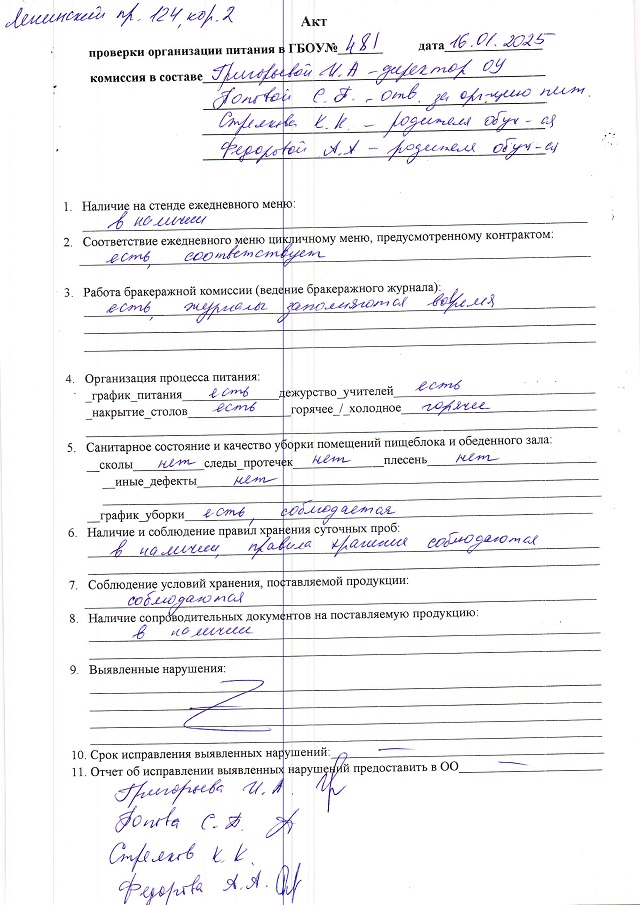 Ленинский пр. 124, кор. 2
Акт
проверки организации питания в ГБОУ№ 481 дата 16.01.2025
комиссия в составе Григорьевой И.А – директор ОУ
Поповой С.Б. – отв. за орг-цию пит.
Стрелкова К.К. – родителя обуч-ся
Федоровой А.А – родителя обуч-ся
1. Наличие на стенде ежедневного меню:
в наличии
2. Соответствие ежедневного меню цикличному меню, предусмотренному контрактом:
есть, соответствует
3. Работа бракеражной комиссии (ведение бракеражного журнала):
есть, журналы заполняются вовремя
4. Организация процесса питания:
_график_питания есть дежурство_учителей есть
_накрытие_столов есть горячее_/_холодное горячее
5. Санитарное состояние и качество уборки помещений пищеблока и обеденного зала:
__сколы нет следы_протечек нет плесень нет
__иные_дефекты нет
__график_уборки есть, соблюдается
6. Наличие и соблюдение правил хранения суточных проб:
в наличии, правила хранения соблюдаются
7. Соблюдение условий хранения, поставляемой продукции:
соблюдаются
8. Наличие сопроводительных документов на поставляемую продукцию:
в наличии
9. Выявленные нарушения:
10. Срок исправления выявленных нарушений: —
11. Отчет об исправлении выявленных нарушений предоставить в ОО —
Григорьева И.А.
Попова С.Б.
Стрелков К.К.
Федорова А.А.